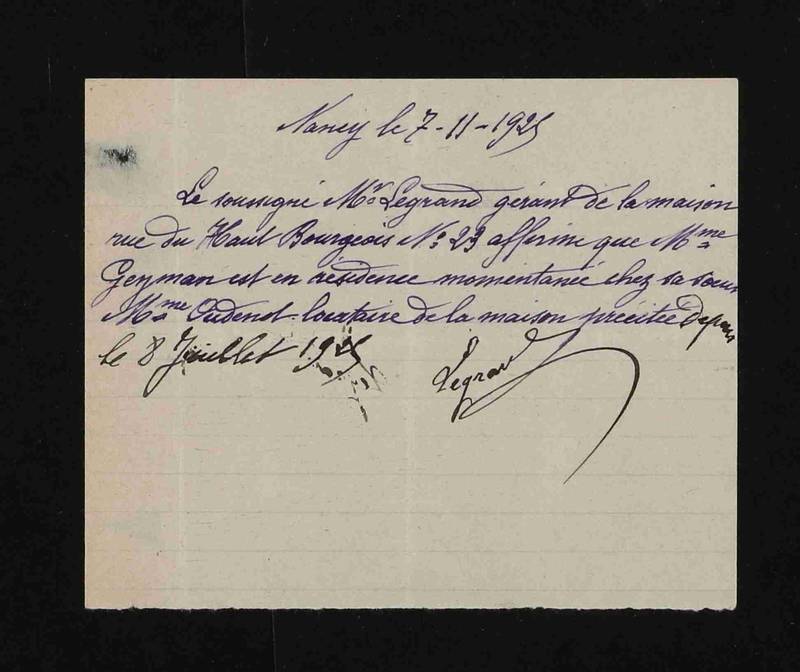 Nancy le 7-11-1925
Le soussigné Mr Legrand gérant de la maison
rue du Haut Bourgeois No 23 affirme que Mme
Geyman est en résidence momentanée chez sa soeur
Mme Oudenot locataire de la maison précitée depuis
le 8 Juillet 1925
Legrand